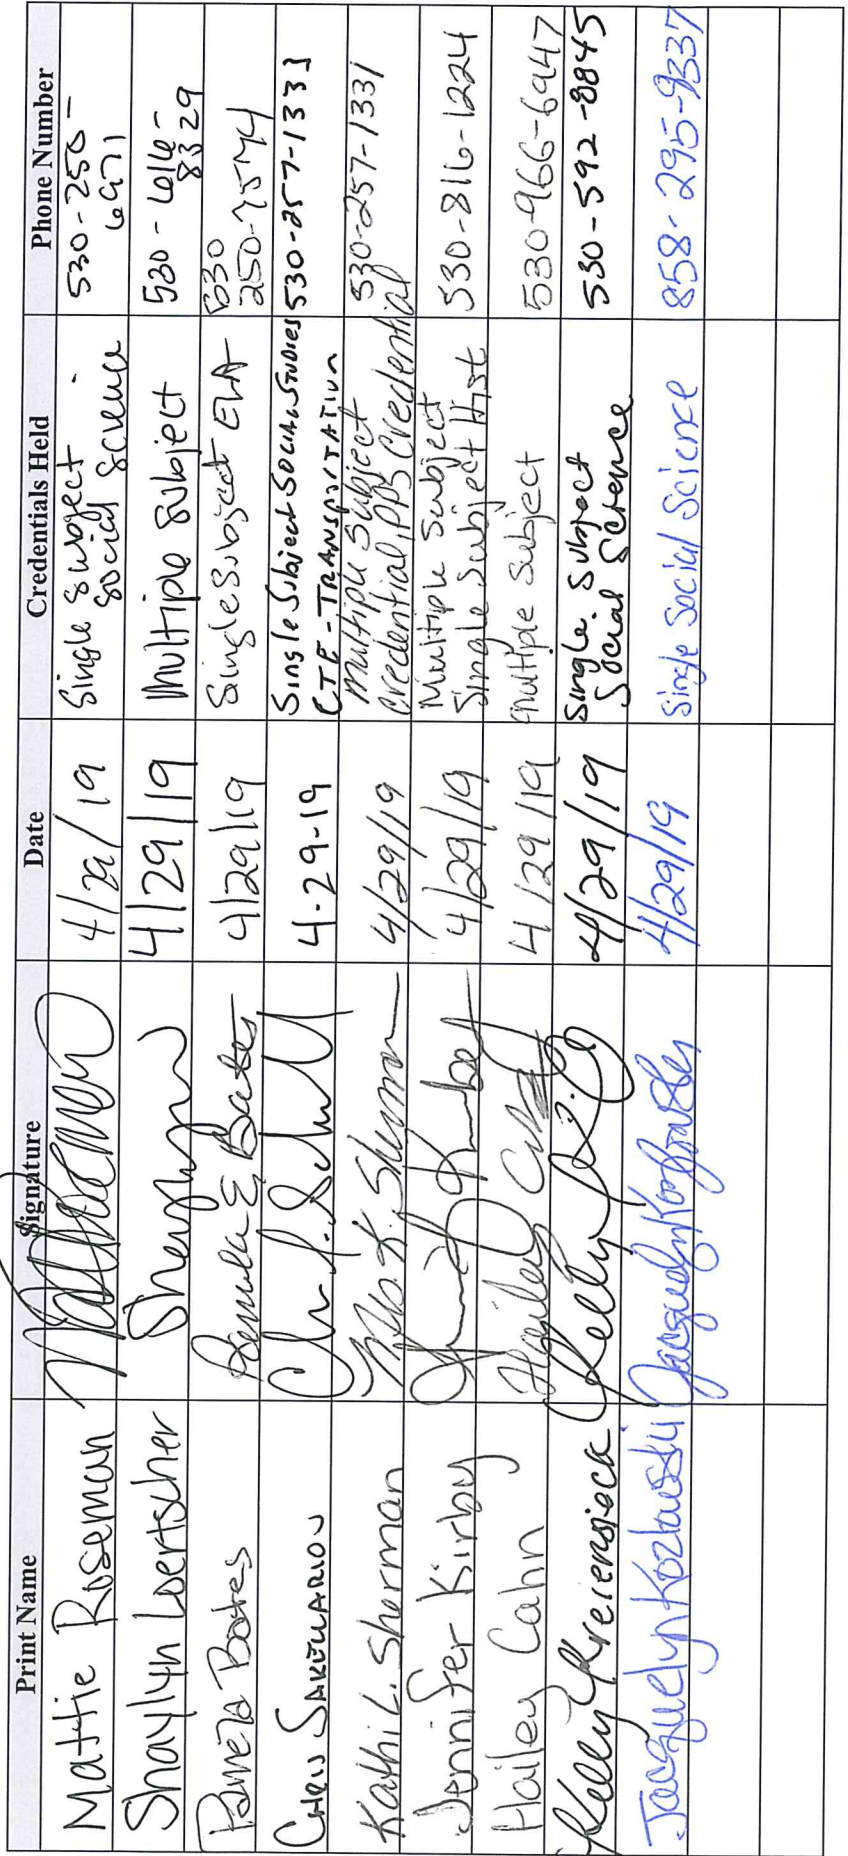 Print Name Signature Date Credentials Held Phone Number
Mattie Roseman 4/29/19 Single Subject - Social Science 530-250-6971
Shaylyn Loertscher 4/29/19 Multiple Subject 530-616-8329
Pamela Bates Pamela E Bates 4/29/19 Single Subject ELA 530
4-29-19 Single Subject Social Studies 530-257-1333
CTE - Transportation
Kathi L. Sherman 4/29/19 Multiple Subject Credential, PPS Credential 530-257-1331
Jennifer Kirby 4/29/19 Multiple Subject 530-816-1224
Single Subject Hist
Hailey Cahn 4/29/19 Multiple Subject 530-966-6947
Kelly 4/29/19 Single Subject Social Science 530-592-8845
Jacquelyn Kozlowski Jacquelyn Kozlowski 4/29/19 Single Social Science 858-295-9337